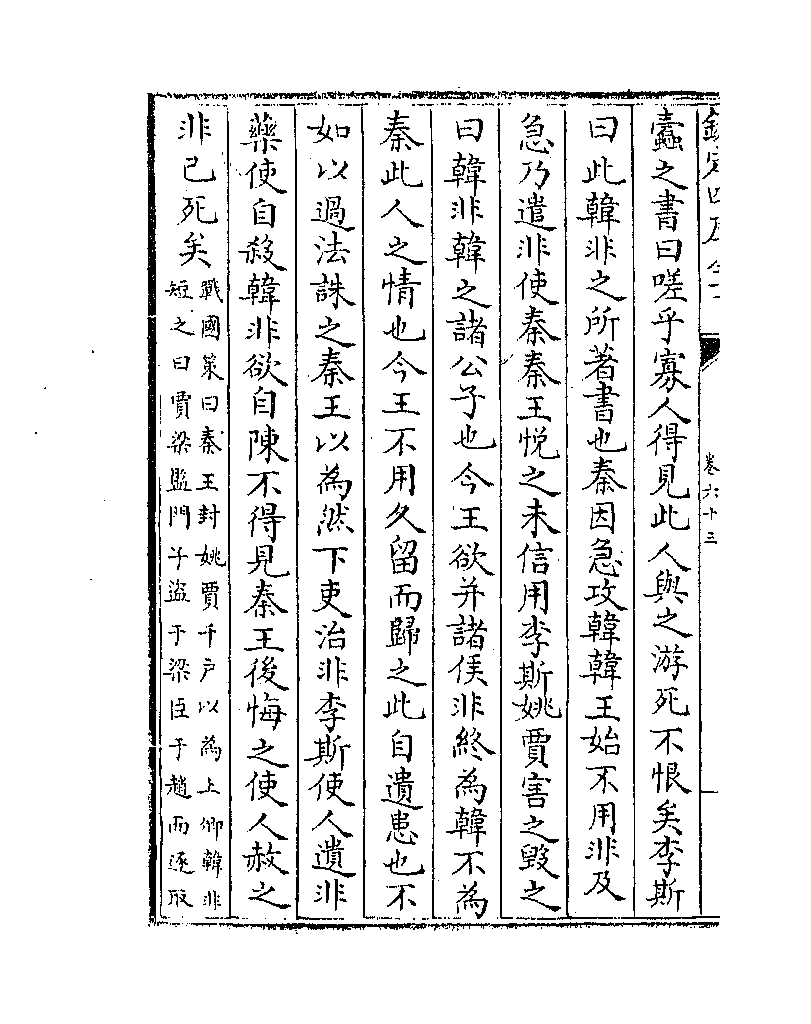 欽定四庫全
卷六十三
蠹之書曰嗟乎寡人得見此人與之游死不恨矣李斯
曰此韓非之所著書也秦因急攻韓韓王始不用非及
急乃遣非使秦秦王悅之未信用李斯姚賈害之毀之
曰韓非韓之諸公子也今王欲并諸侯非終為韓不為
秦此人之情也今王不用久留而歸之此自遺患也不
如以過法誅之秦王以為然下吏治非李斯使人遺非
藥使自殺韓非欲自陳不得見秦王後悔之使人赦之
非已死矣
戰國策曰秦王封姚賈千戶以為上卿韓非
短之曰賈梁監門子盜于梁臣于趙而逐取